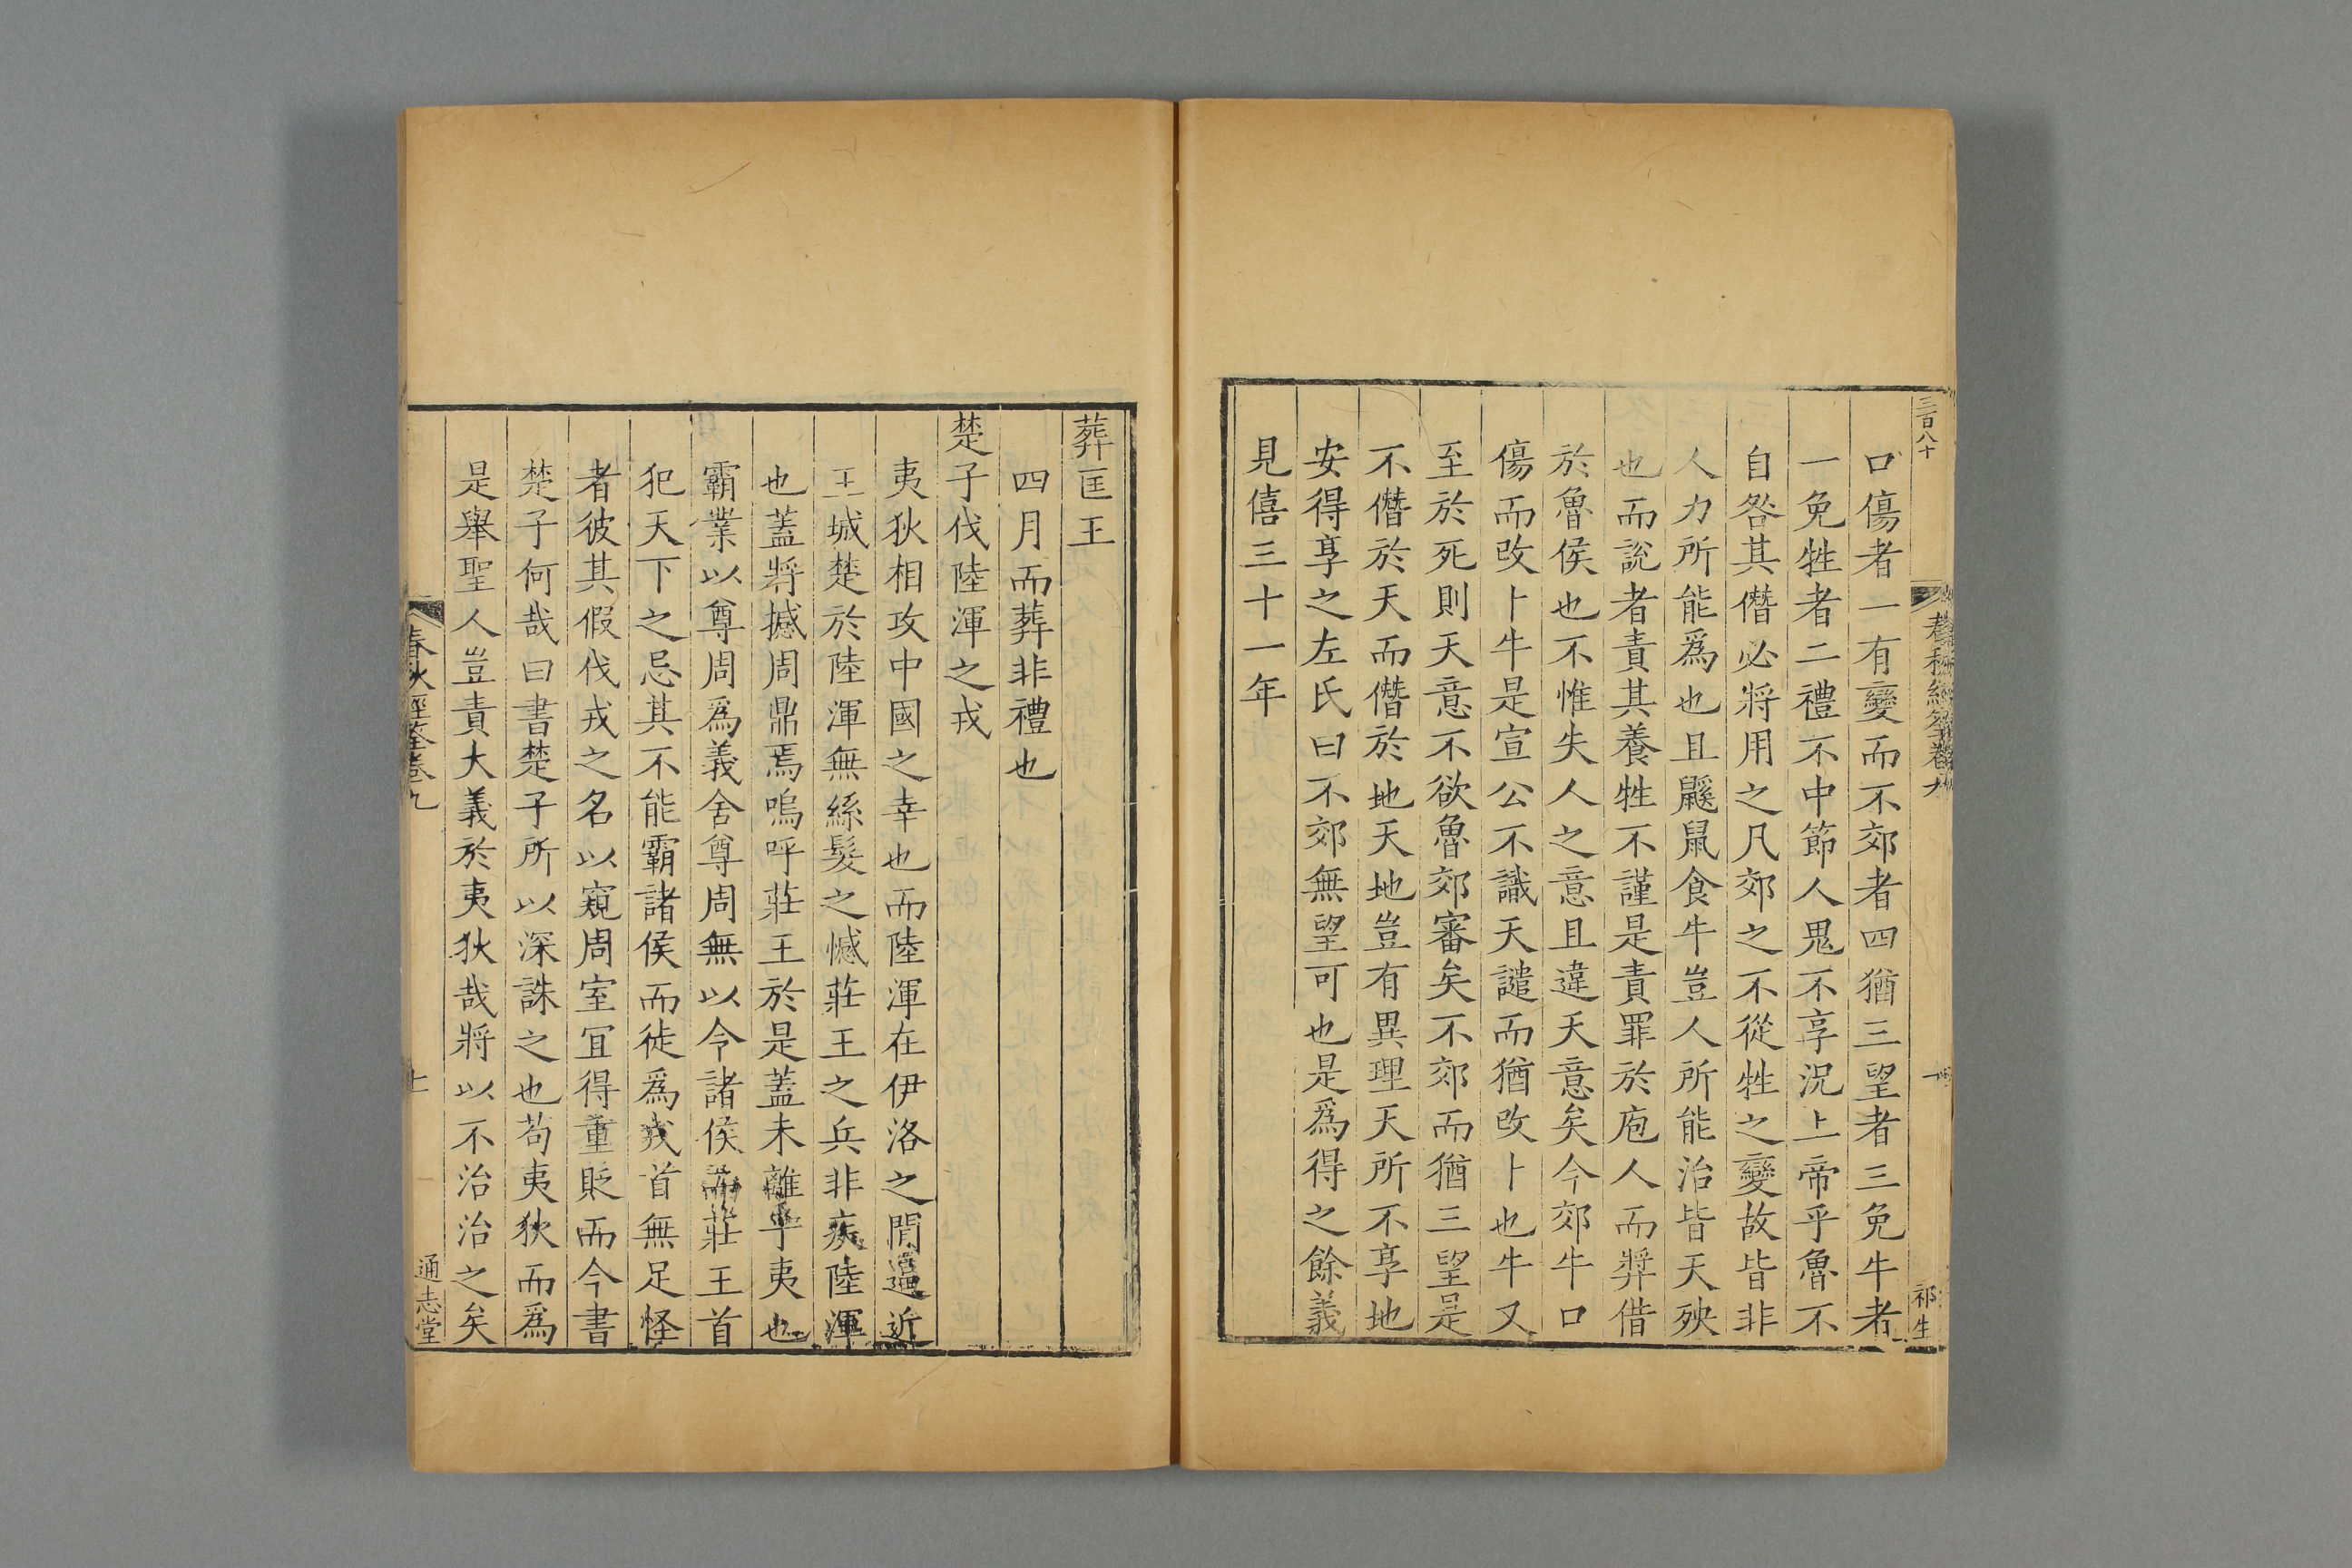 三百八十
春秋經筌卷九
祁生
口傷者一有變而不郊者四猶三望者三免牛者
一免牲者二禮不中節人鬼不享況上帝乎魯不
自咎其僭必將用之凡郊之不從牲之變故皆非
人力所能爲也且鼷鼠食牛豈人所能治皆天殃
也而說者責其養牲不謹是責罪於庖人而弊借
於魯侯也不惟失人之意且違天意矣今郊牛口
傷而改卜牛是宣公不識天譴而猶改卜也牛又
至於死則天意不欲魯郊審矣不郊而猶三望是
不僭於天而僭於地天地豈有異理天所不享地
安得享之左氏曰不郊無望可也是爲得之餘義
見僖三十一年
葬匡王
四月而葬非禮也
楚子伐陸渾之戎
夷狄相攻中國之幸也而陸渾在伊洛之閒逼近
王城楚於陸渾無絲髮之憾莊王之兵非疾陸渾
也蓋將撼周鼎焉嗚呼莊王於是蓋未離乎夷也
霸業以尊周爲義舍尊周無以令諸侯而莊王首
犯天下之忌其不能霸諸侯而徒爲戎首無足怪
者彼其假伐戎之名以窺周室宜得重貶而今書
楚子何哉曰書楚子所以深誅之也苟夷狄而爲
是舉聖人豈責大義於夷狄哉將以不治治之矣
春秋經筌卷九
通志堂